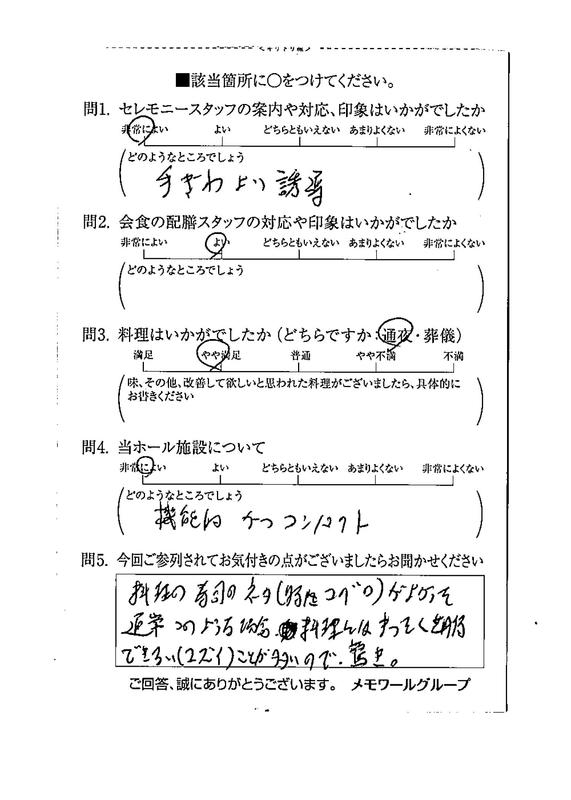 ■該当箇所に○をつけてください。
問1. セレモニースタッフの案内や対応、印象はいかがでしたか
非常によい よい どちらともいえない あまりよくない 非常によくない
どのようなところでしょう
手ぎわよい誘導
問2. 会食の配膳スタッフの対応や印象はいかがでしたか
非常によい よい どちらともいえない あまりよくない 非常によくない
(どのようなところでしょう
問3. 料理はいかがでしたか(どちらですか:通夜・葬儀)
満足 やや満足 普通 やや不満 不満
味、その他、改善して欲しいと思われた料理がございましたら、具体的に
お書きください
問4. 当ホール施設について
非常によい よい どちらともいえない あまりよくない 非常によくない
どのようなところでしょう
機能的 かつ コンパクト
問5. 今回ご参列されてお気付きの点がございましたらお聞かせください
料理の寿司のネタ(特に マグロ)がよかった
通常このような場合、料理はまったく期待
できない(マズイ)ことが多いので、驚き。
ご回答、誠にありがとうございます。 メモワールグループ